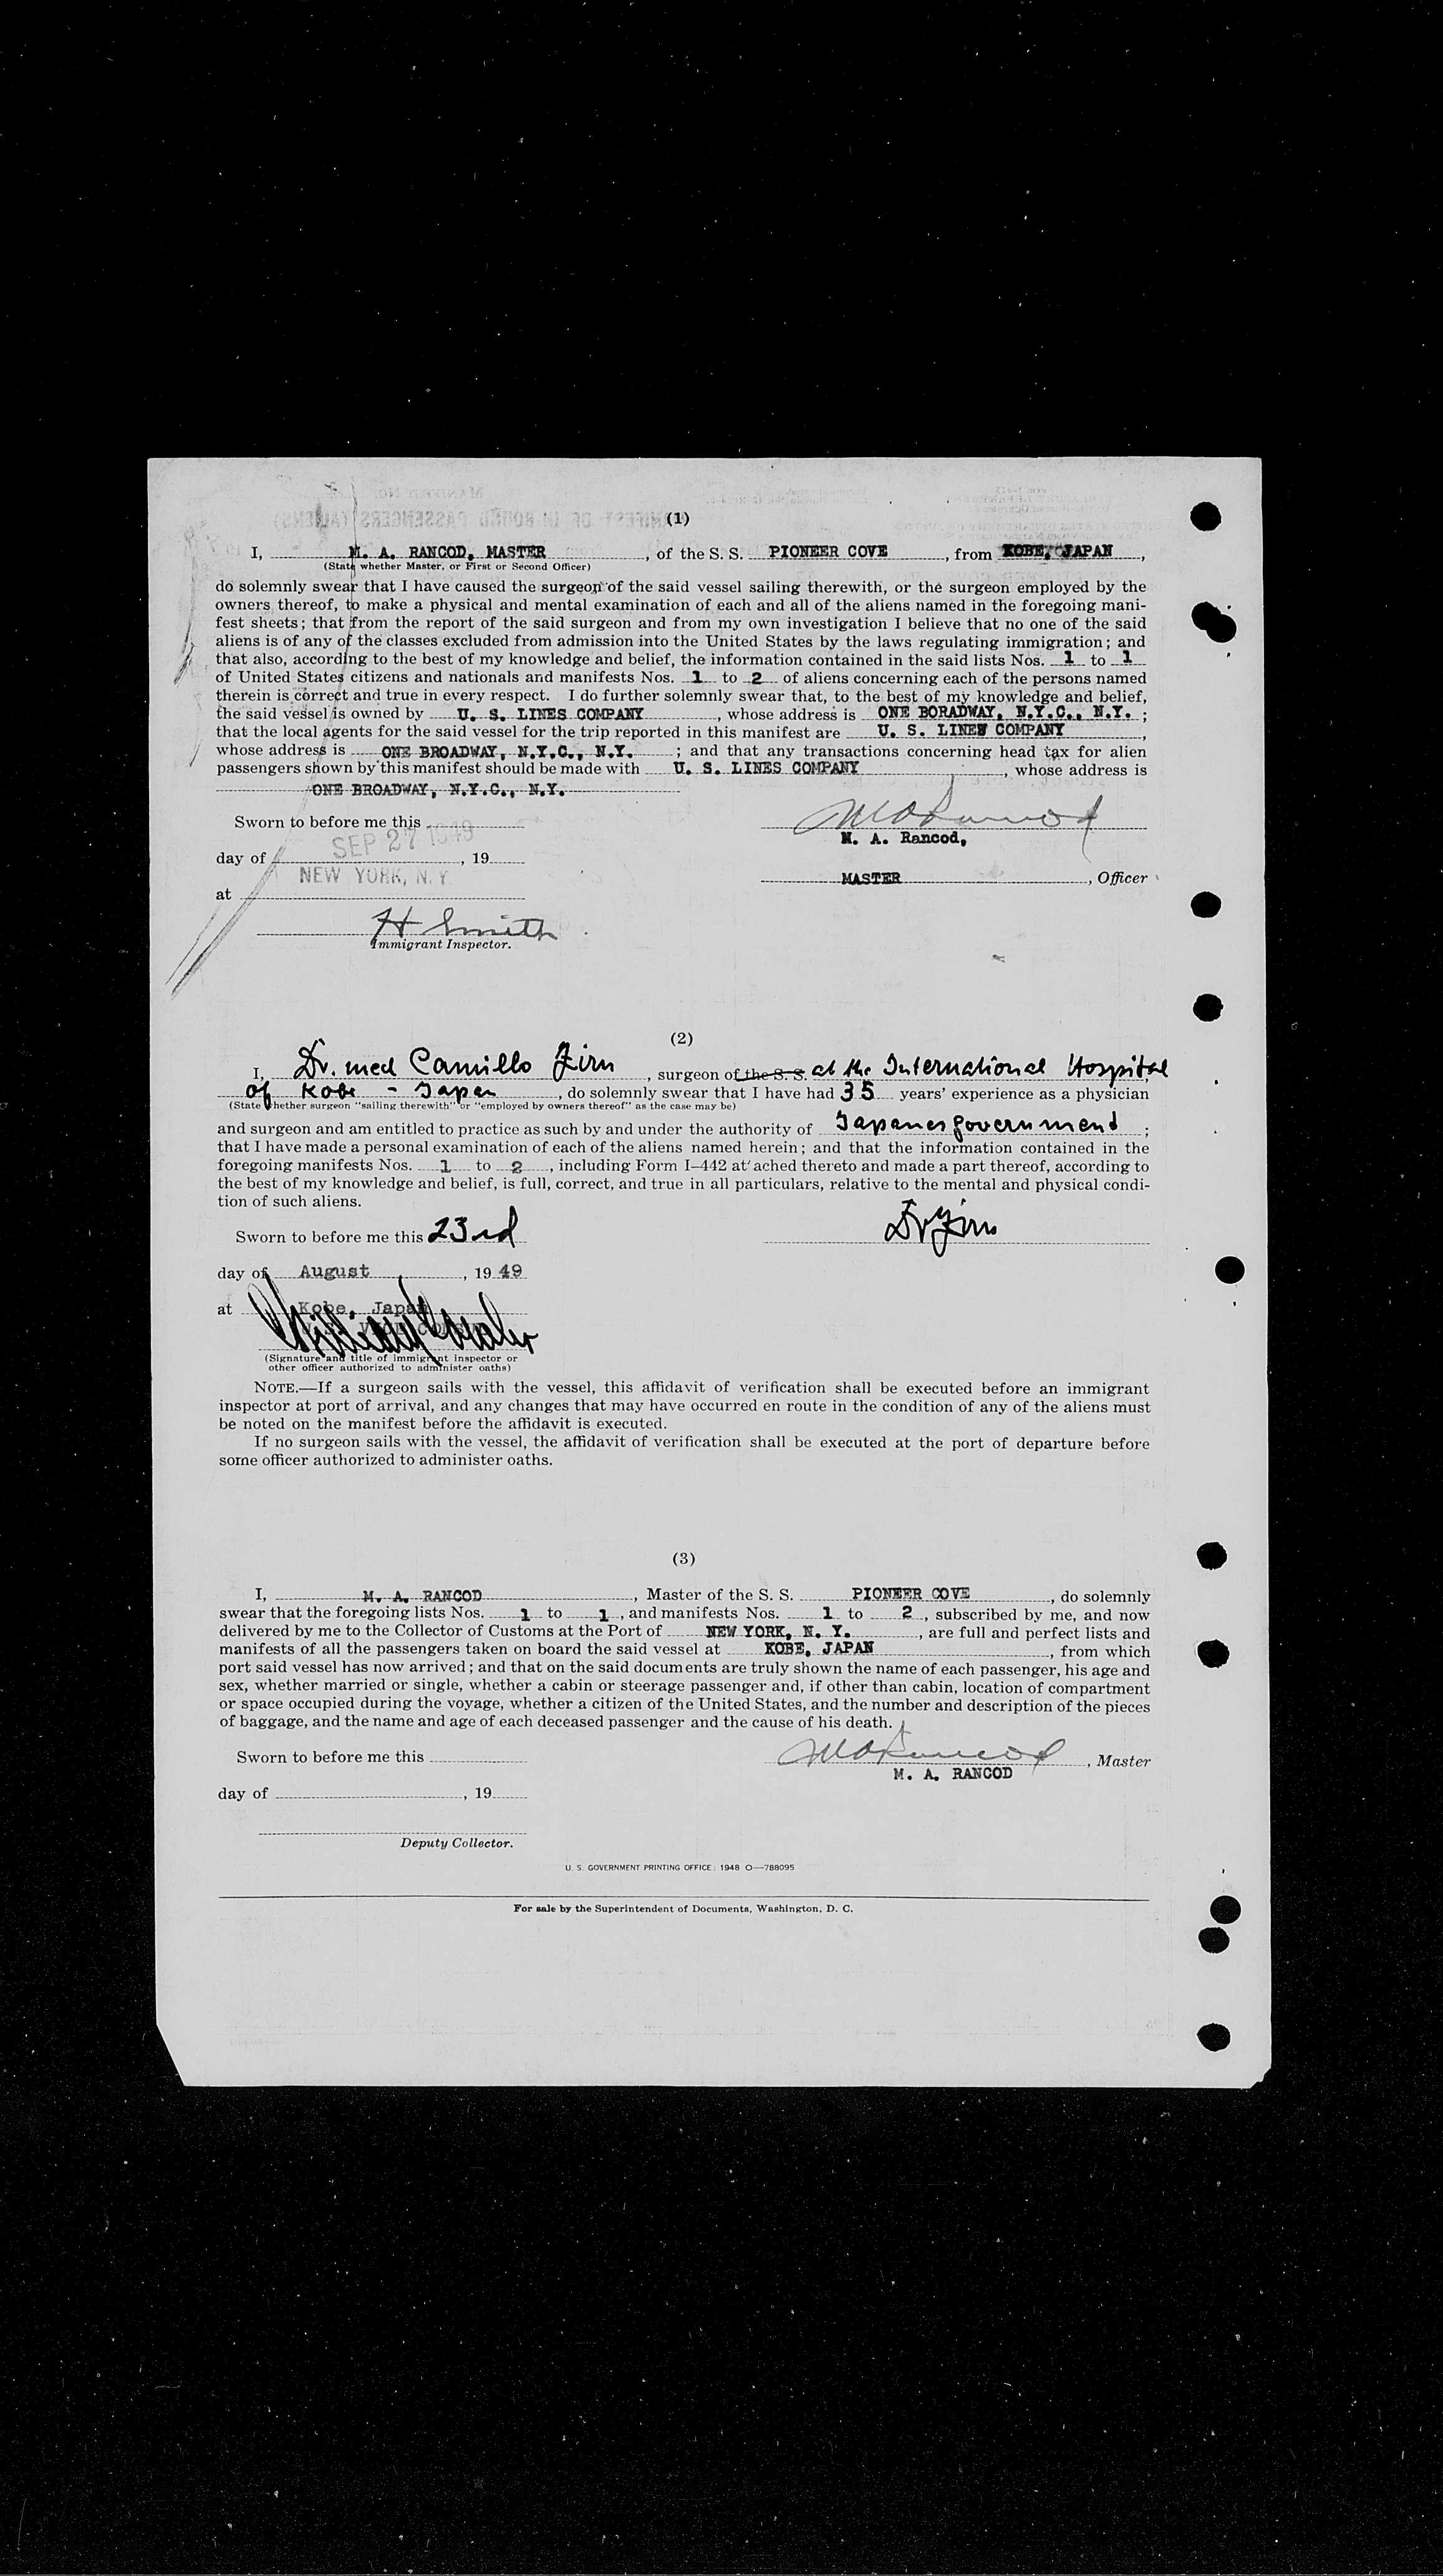 (1)
I, M. A. RANCOD, MASTER, of the S. S. PIONEER COVE, from KOBE, JAPAN,
(State whether Master, or First or Second Officer)
do solemnly swear that I have caused the surgeon of the said vessel sailing therewith, or the surgeon employed by the
owners thereof, to make a physical and mental examination of each and all of the aliens named in the foregoing mani-
fest sheets; that from the report of the said surgeon and from my own investigation I believe that no one of the said
aliens is of any of the classes excluded from admission into the United States by the laws regulating immigration; and
that also, according to the best of my knowledge and belief, the information contained in the said lists Nos. 1 to 1
of United States citizens and nationals and manifests Nos. 1 to 2 of aliens concerning each of the persons named
therein is correct and true in every respect. I do further solemnly swear that, to the best of my knowledge and belief,
the said vessel is owned by U. S. LINES COMPANY, whose address is ONE BORADWAY, N.Y.C., N.Y. ;
that the local agents for the said vessel for the trip reported in this manifest are U. S. LINES COMPANY,
whose address is ONE BROADWAY, N.Y.C., N.Y. ; and that any transactions concerning head tax for alien
passengers shown by this manifest should be made with U. S. LINES COMPANY, whose address is
ONE BROADWAY, N.Y.C., N.Y.
Sworn to before me this
M A Rancod
M. A. Rancod,
SEP 27 1949
day of , 19
NEW YORK, N.Y.
MASTER, Officer
at
H Smith
Immigrant Inspector.
(2)
I, Dr. med Camillo Zirn, surgeon of the S. S. at the International Hospital
of Kobe - Japan, do solemnly swear that I have had 35 years' experience as a physician
(State whether surgeon "sailing therewith" or "employed by owners thereof" as the case may be)
and surgeon and am entitled to practice as such by and under the authority of Japanes government ;
that I have made a personal examination of each of the aliens named herein; and that the information contained in the
foregoing manifests Nos. 1 to 2, including Form I-442 attached thereto and made a part thereof, according to
the best of my knowledge and belief, is full, correct, and true in all particulars, relative to the mental and physical condi-
tion of such aliens.
Dr Zirn
Sworn to before me this 23rd
day of August, 19 49
at Kobe, Japan
(Signature and title of immigrant inspector or
other officer authorized to administer oaths)
NOTE.—If a surgeon sails with the vessel, this affidavit of verification shall be executed before an immigrant
inspector at port of arrival, and any changes that may have occurred en route in the condition of any of the aliens must
be noted on the manifest before the affidavit is executed.
If no surgeon sails with the vessel, the affidavit of verification shall be executed at the port of departure before
some officer authorized to administer oaths.
(3)
I, M. A. RANCOD, Master of the S. S. PIONEER COVE, do solemnly
swear that the foregoing lists Nos. 1 to 1, and manifests Nos. 1 to 2, subscribed by me, and now
delivered by me to the Collector of Customs at the Port of NEW YORK, N. Y., are full and perfect lists and
manifests of all the passengers taken on board the said vessel at KOBE, JAPAN, from which
port said vessel has now arrived; and that on the said documents are truly shown the name of each passenger, his age and
sex, whether married or single, whether a cabin or steerage passenger and, if other than cabin, location of compartment
or space occupied during the voyage, whether a citizen of the United States, and the number and description of the pieces
of baggage, and the name and age of each deceased passenger and the cause of his death.
Sworn to before me this
M A Rancod, Master
M. A. RANCOD
day of , 19
Deputy Collector.
U. S. GOVERNMENT PRINTING OFFICE: 1948 O—788095
For sale by the Superintendent of Documents, Washington, D. C.